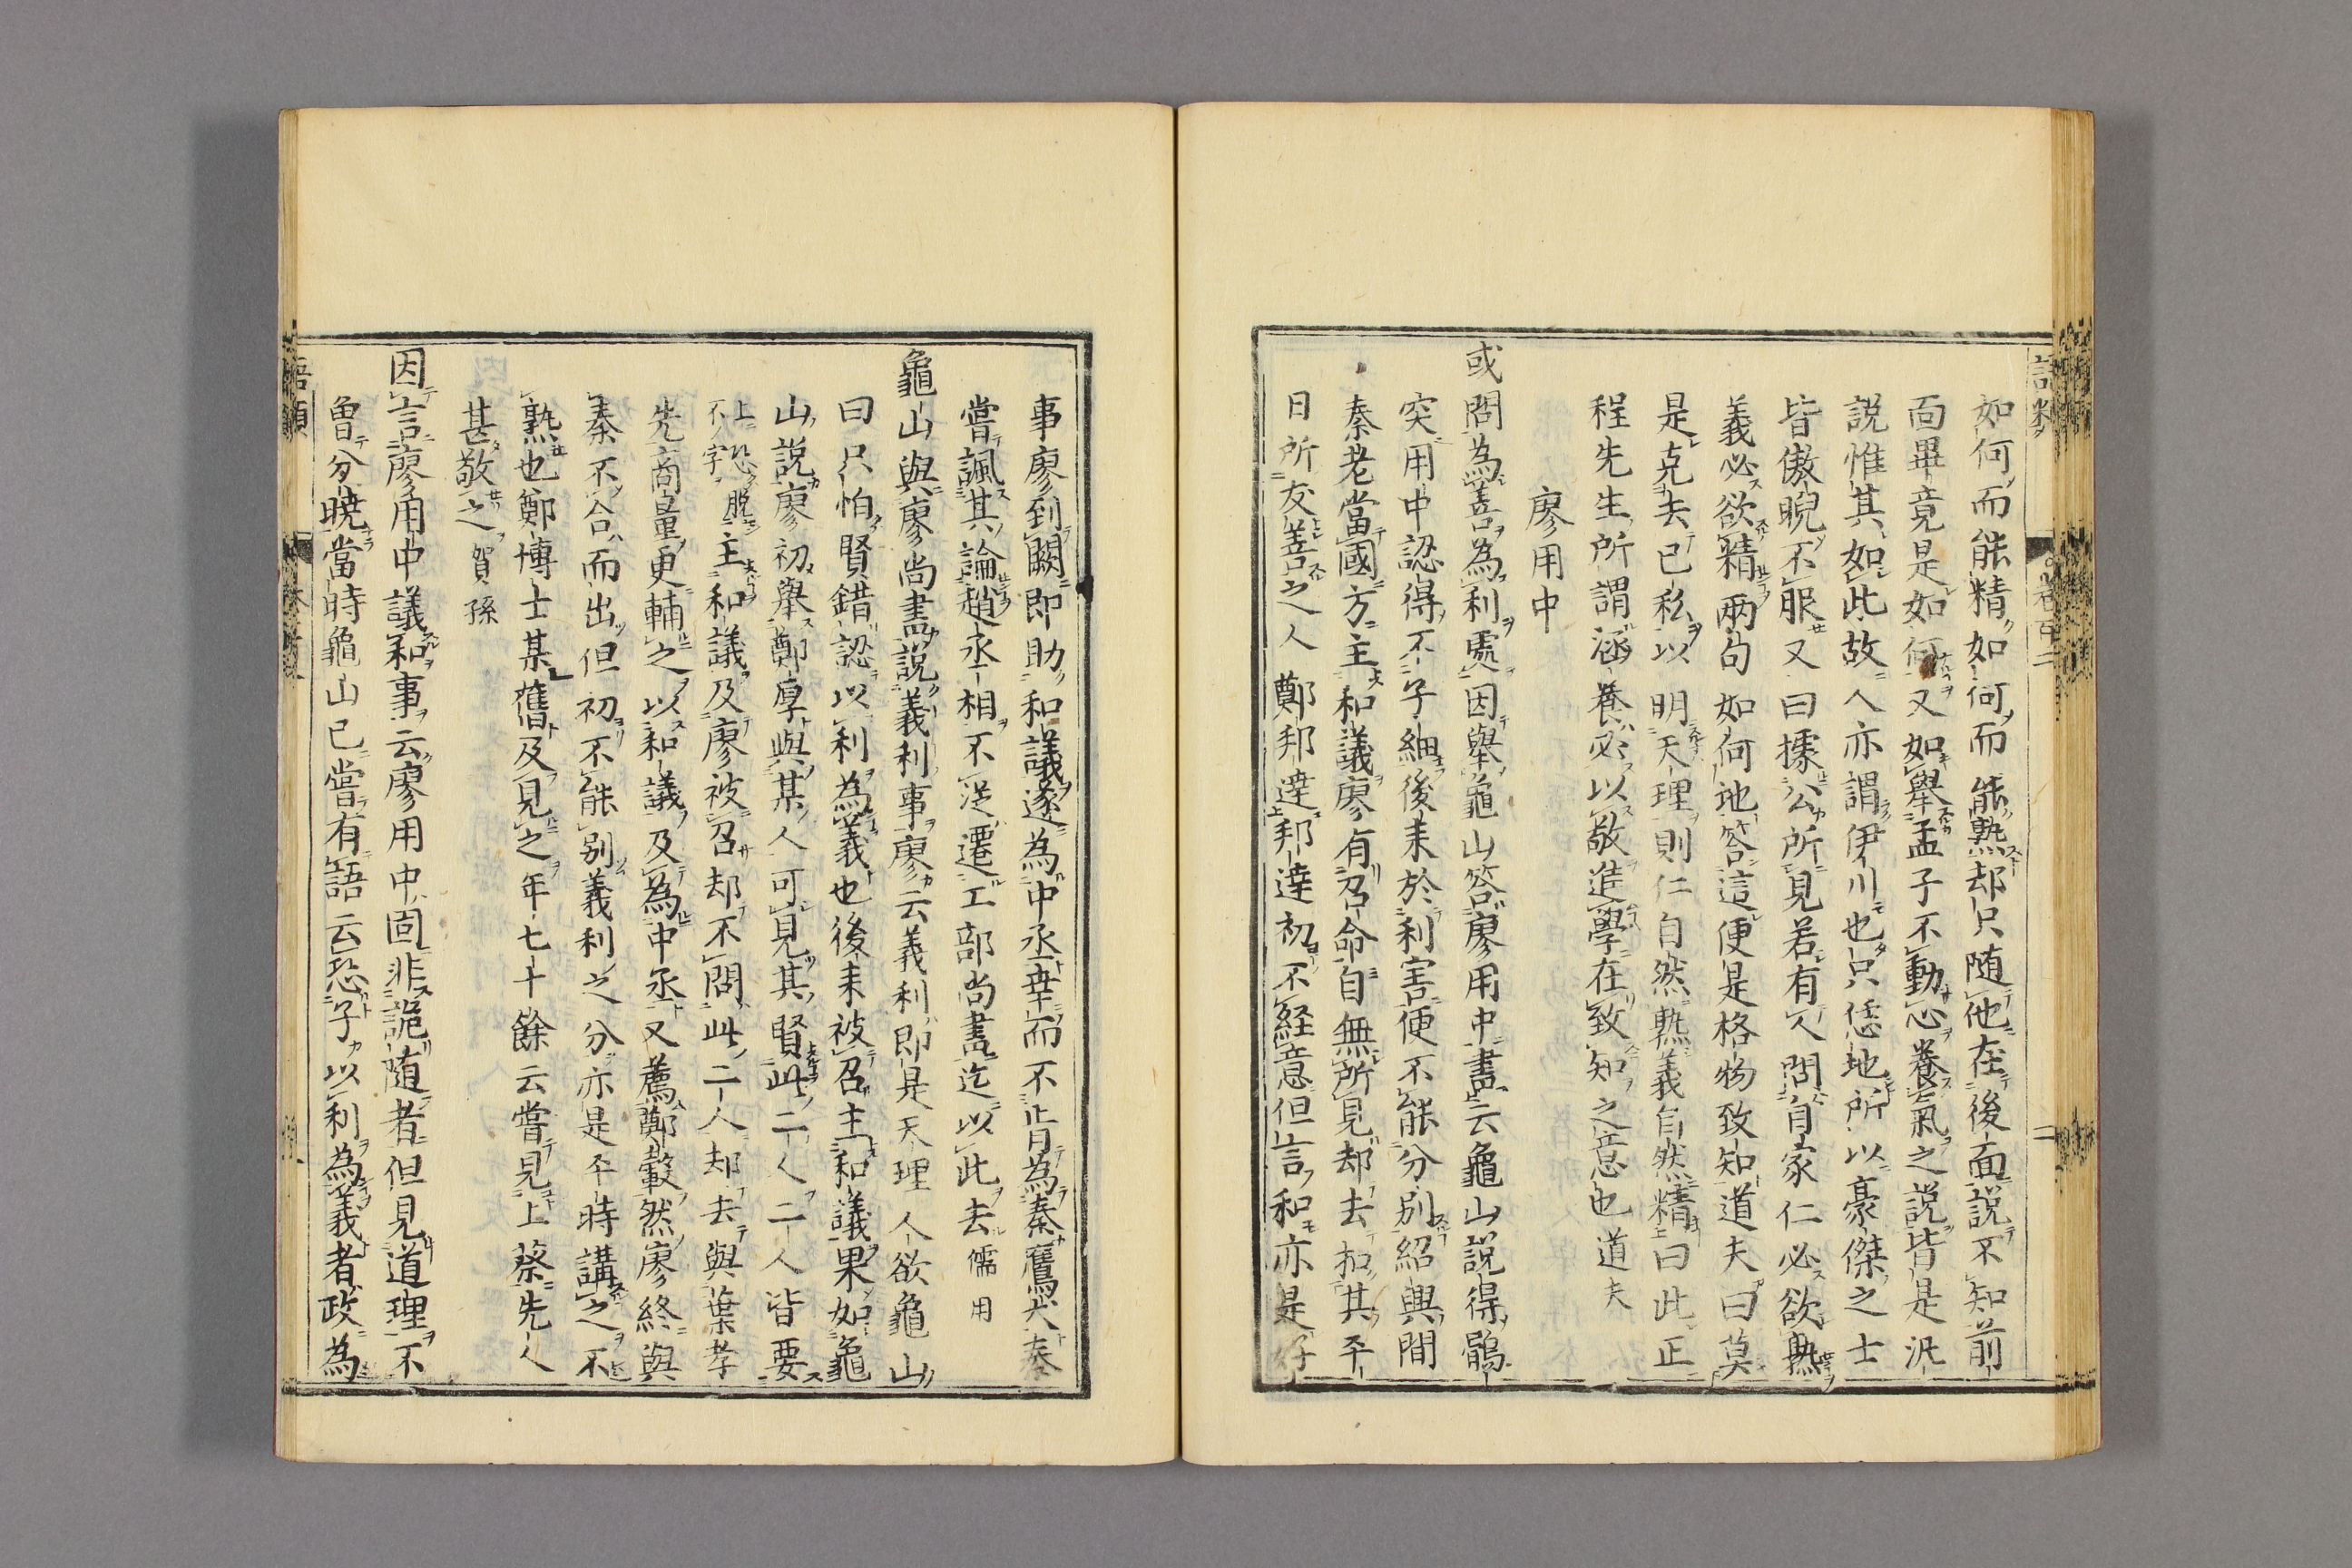 如何而能精如何而能熟却只随他在後面説不知前
面畢竟是如何又如舉孟子不動心養氣之説皆是汎
説惟其如此故人亦謂伊川也只恁地所以豪傑之士
皆傲睨不服又曰據公所見若有人問自家仁必欲熟
義必欲精兩句如何地答這便是格物致知道夫曰莫
是克去己私以明天理則仁自然熟義自然精曰此正
程先生所謂涵養必以敬進學在致知之意也道夫
廖用中
或問為善為利處因舉龜山答廖用中書云龜山説得鶻
突用中認得不子細後来於利害便不能分別紹興間
秦老當國方主和議廖有召命自無所見却去扣其平
日所友善之人鄭邦達邦達初不経意但言和亦是好
事廖到闕即助和議遂為中丞幸而不肯為秦鷹犬秦
嘗諷其論趙丞相不従遷工部尚書迄以此去儒用
龜山與廖尚書説義利事廖云義利即是天理人欲龜山
曰只怕賢錯認以利為義也後来被召主和議果如龜
山説廖初舉鄭厚與某人可見其賢此二人二人皆要
上恐脱不字主和議及廖被召却不問此二人却去與葉孝
先商量更輔之以和議及為中丞又薦鄭轂然廖終與
秦不合而出但初不能別義利之分亦是平時講之不
熟也鄭博士某舊及見之年七十餘云嘗見上蔡先人
甚敬之賀孫
因言廖用中議和事云廖用中固非詭随者但見道理不
曾分曉當時龜山已嘗有語云恐子以利為義者政為